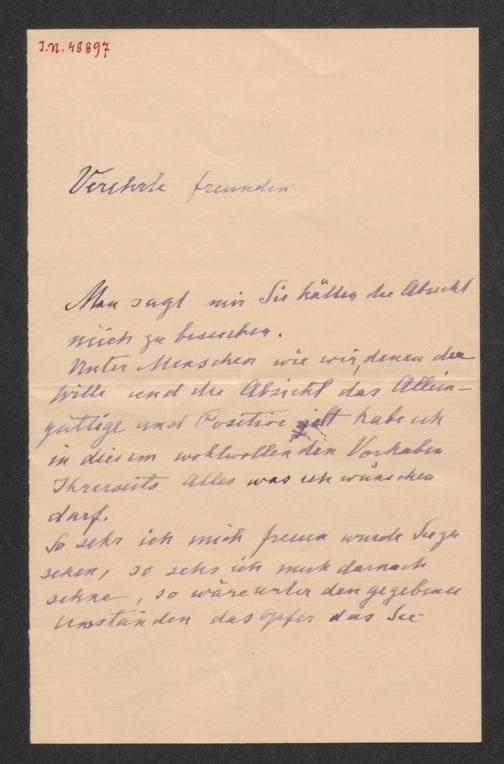 I.N. 48897
Verehrte freundin
Man sagt mir Sie hätten die Absicht
mich zu besuchen.
Unter Menschen wie wir, denen der
Wille und die Absicht das Allein-
gültige und Positive gilt habe ich
in diesem wohlwollenden Vorhaben
Ihrerseits Alles was ich wünschen
darf.
So sehr ich mich freuen würde Sie zu
sehen, so sehr ich mich darnach
sehne, so wäre unter den gegebenen
Umständen das Opfer das Sie